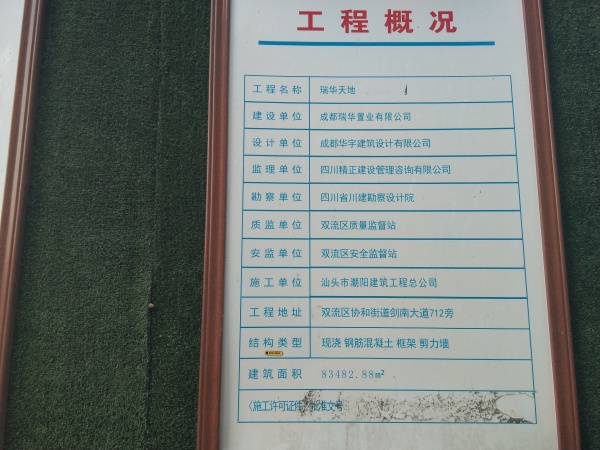 工程概况
工程名称 瑞华天地
建设单位 成都瑞华置业有限公司
设计单位 成都华宇建筑设计有限公司
监理单位 四川精正建设管理咨询有限公司
勘察单位 四川省川建勘察设计院
质监单位 双流区质量监督站
安监单位 双流区安全监督站
施工单位 汕头市潮阳建筑工程总公司
工程地址 双流区协和街道剑南大道712旁
结构类型 现浇 钢筋混凝土 框架 剪力墙
建筑面积 83482.88m²
(施工许可证件)批准文号